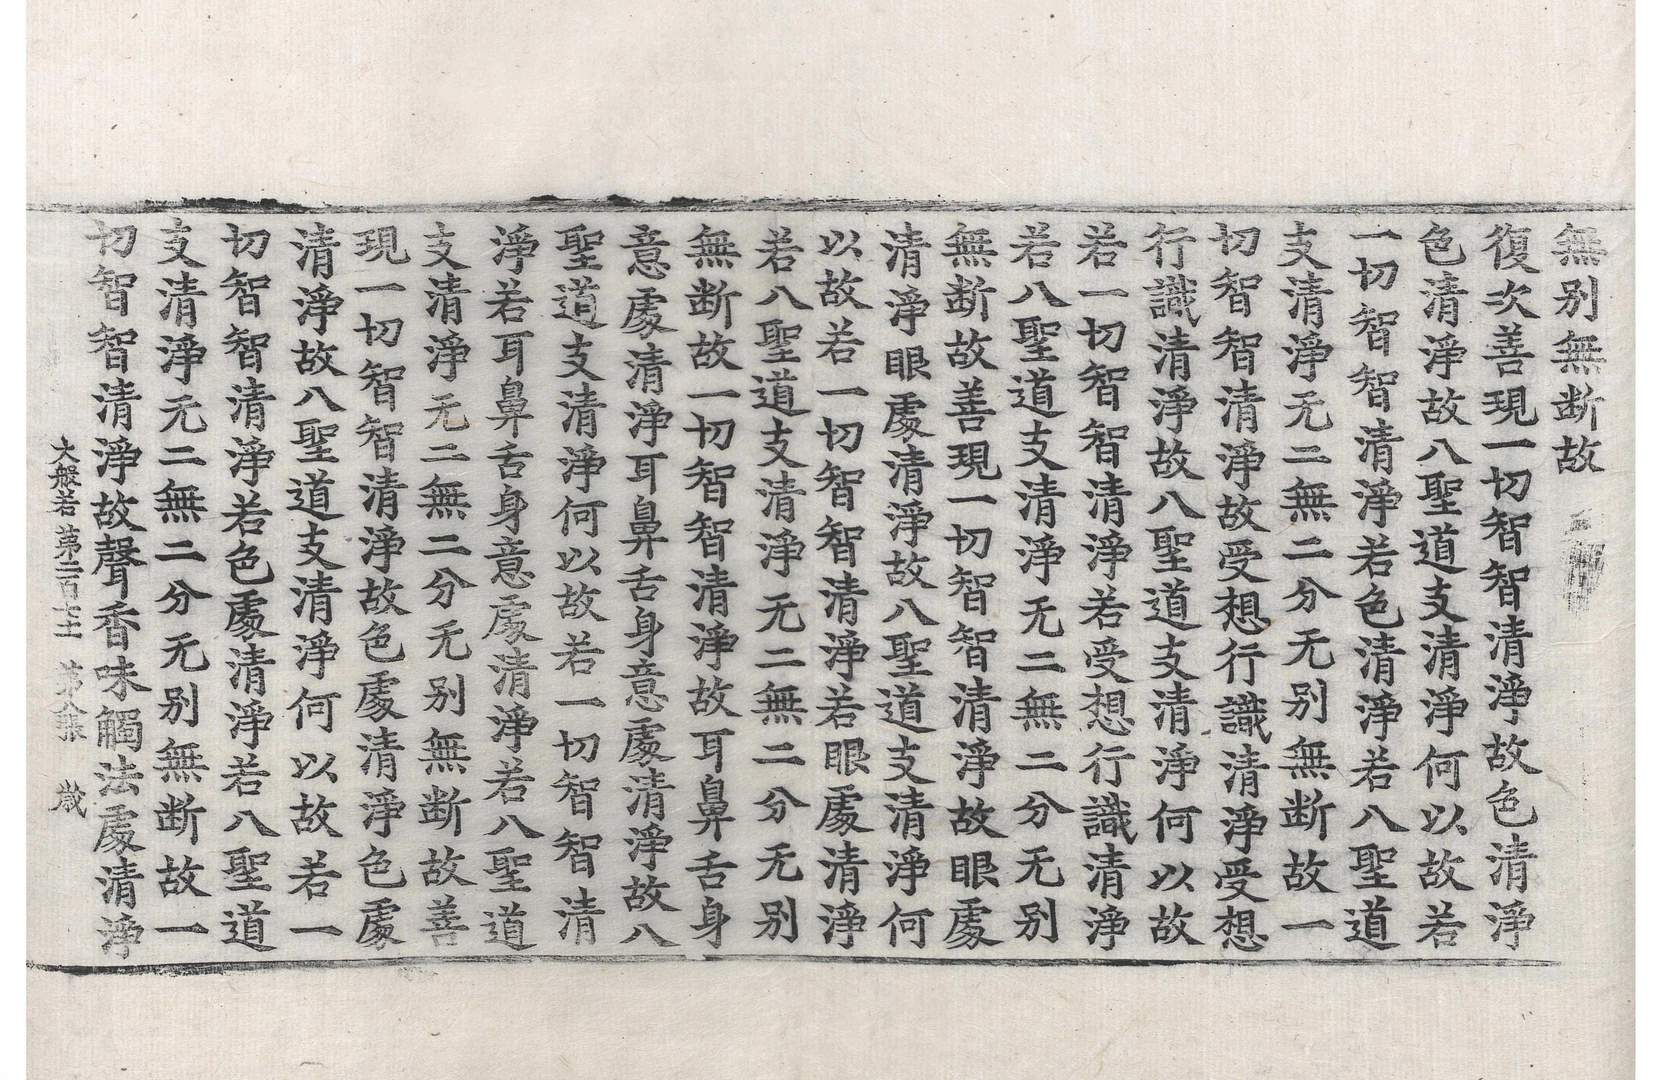 無別無断故
復次善現一切智智清淨故色清淨
色清淨故八聖道支清淨何以故若
一切智智清淨若色清淨若八聖道
支清淨无二無二分无別無断故一
切智智清淨故受想行識清淨受想
行識清淨故八聖道支清淨何以故
若一切智智清淨若受想行識清淨
若八聖道支清淨无二無二分无別
無断故善現一切智智清淨故眼處
清淨眼處清淨故八聖道支清淨何
以故若一切智智清淨若眼處清淨
若八聖道支清淨无二無二分无別
無断故一切智智清淨故耳鼻舌身
意處清淨耳鼻舌身意處清淨故八
聖道支清淨何以故若一切智智清
淨若耳鼻舌身意處清淨若八聖道
支清淨无二無二分无別無断故善
現一切智智清淨故色處清淨色處
清淨故八聖道支清淨何以故若一
切智智清淨若色處清淨若八聖道
支清淨无二無二分无別無断故一
切智智清淨故聲香味觸法處清淨
大般若第二百